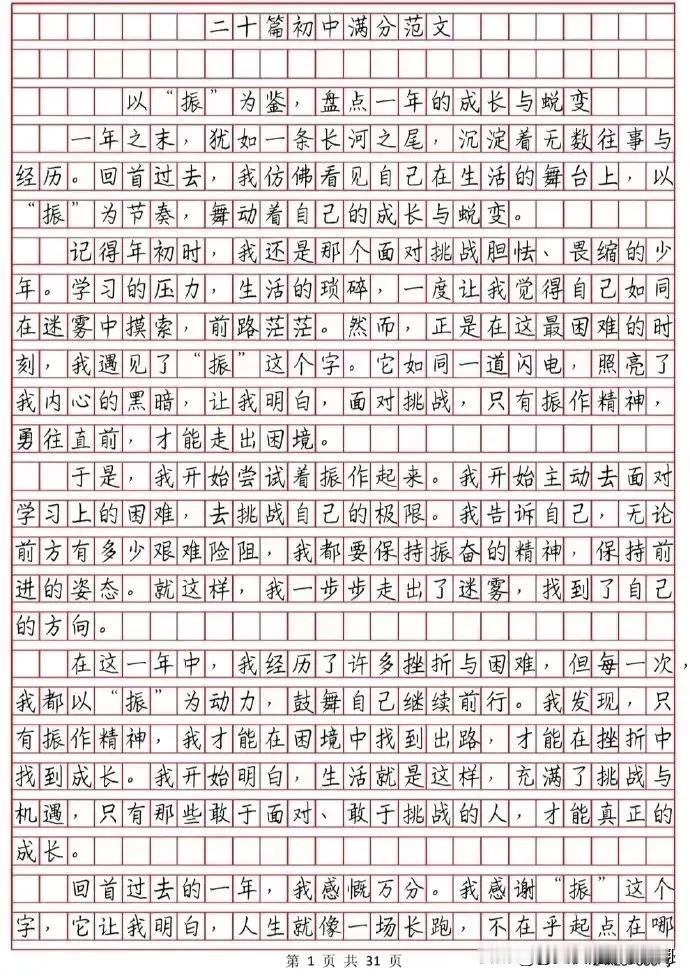 二十篇初中满分范文
以“振”为鉴，盘点一年的成长与蜕变
一年之末，犹如一条长河之尾，沉淀着无数往事与
经历。回首过去，我仿佛看见自己在生活的舞台上，以
“振”为节奏，舞动着自己的成长与蜕变。
记得年初时，我还是那个面对挑战胆怯、畏缩的少
年。学习的压力，生活的琐碎，一度让我觉得自己如同
在迷雾中摸索，前路茫茫。然而，正是在这最困难的时
刻，我遇见了“振”这个字。它如同一道闪电，照亮了
我内心的黑暗，让我明白，面对挑战，只有振作精神，
勇往直前，才能走出困境。
于是，我开始尝试着振作起来。我开始主动去面对
学习上的困难，去挑战自己的极限。我告诉自己，无论
前方有多少艰难险阻，我都要保持振奋的精神，保持前
进的姿态。就这样，我一步步走出了迷雾，找到了自己
的方向。
在这一年中，我经历了许多挫折与困难，但每一次，
我都以“振”为动力，鼓舞自己继续前行。我发现，只
有振作精神，我才能在困境中找到出路，才能在挫折中
找到成长。我开始明白，生活就是这样，充满了挑战与
机遇，只有那些敢于面对、敢于挑战的人，才能真正的
成长。
回首过去的一年，我感慨万分。我感谢“振”这个
字，它让我明白，人生就像一场长跑，不在乎起点在哪
第 1 页 共 31 页